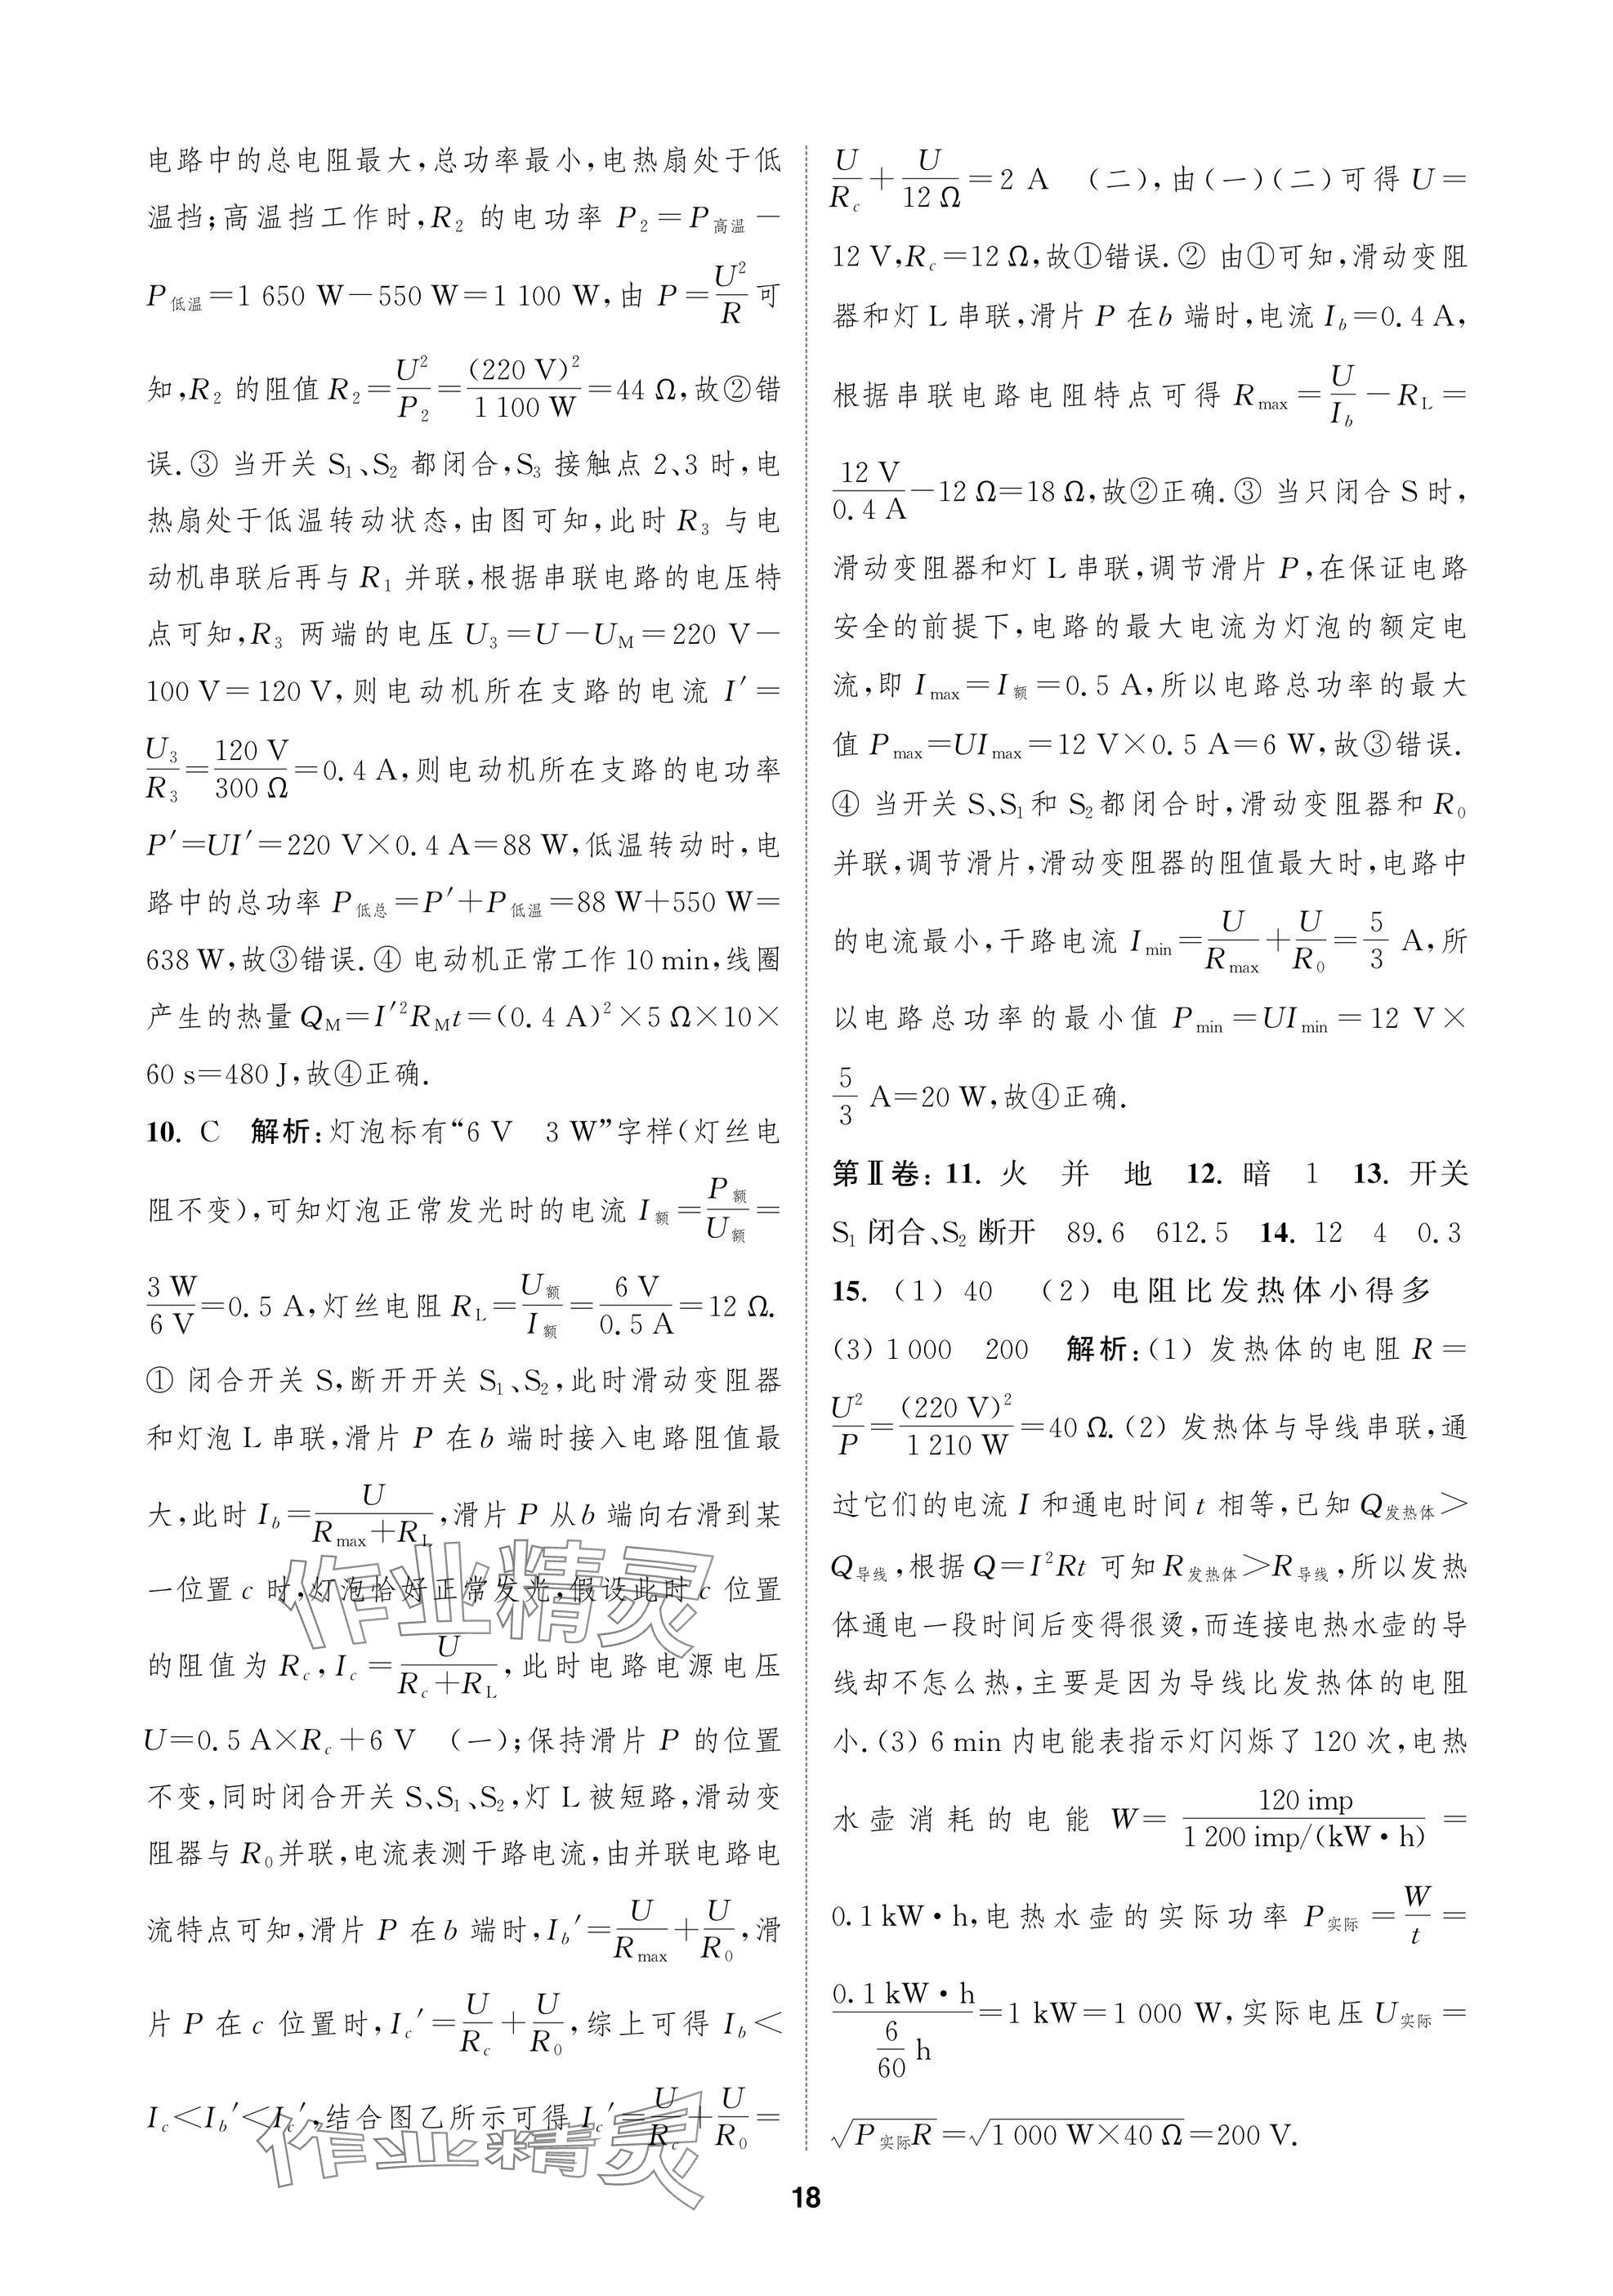 电路中的总电阻最大,总功率最小,电热扇处于低
温挡;高温挡工作时,R₂ 的电功率 P₂=P高温-
P低温=1 650 W-550 W=1 100 W,由 P=U²/R 可
知,R₂ 的阻值 R₂=U²/P₂=(220 V)²/1 100 W=44 Ω,故②错
误.③ 当开关 S₁、S₂ 都闭合,S₃ 接触点 2、3 时,电
热扇处于低温转动状态,由图可知,此时 R₃ 与电
动机串联后再与 R₁ 并联,根据串联电路的电压特
点可知,R₃ 两端的电压 U₃=U-U_M=220 V-
100 V=120 V,则电动机所在支路的电流 I′=
U₃/R₃=120 V/300 Ω=0.4 A,则电动机所在支路的电功率
P′=UI′=220 V×0.4 A=88 W,低温转动时,电
路中的总功率 P低总=P′+P低温=88 W+550 W=
638 W,故③错误.④ 电动机正常工作 10 min,线圈
产生的热量 Q_M=I′²R_Mt=(0.4 A)²×5 Ω×10×
60 s=480 J,故④正确.
10. C 解析:灯泡标有“6 V 3 W”字样(灯丝电
阻不变),可知灯泡正常发光时的电流 I额=P额/U额=
3 W/6 V=0.5 A,灯丝电阻 R_L=U额/I额=6 V/0.5 A=12 Ω.
① 闭合开关 S,断开开关 S₁、S₂,此时滑动变阻器
和灯泡 L 串联,滑片 P 在 b 端时接入电路阻值最
大,此时 I_b=U/(R_max+R_L),滑片 P 从 b 端向右滑到某
一位置 c 时,灯泡恰好正常发光,假设此时 c 位置
的阻值为 R_c,I_c=U/(R_c+R_L),此时电路电源电压
U=0.5 A×R_c+6 V (一);保持滑片 P 的位置
不变,同时闭合开关 S、S₁、S₂,灯 L 被短路,滑动变
阻器与 R₀并联,电流表测干路电流,由并联电路电
流特点可知,滑片 P 在 b 端时,I_b′=U/R_max+U/R₀,滑
片 P 在 c 位置时,I_c′=U/R_c+U/R₀,综上可得 I_b<
I_c<I_b′<I_c′,结合图乙所示可得 I_c′=U/R_c+U/R₀=
U/R_c+U/12 Ω=2 A (二),由(一)(二)可得 U=
12 V,R_c=12 Ω,故①错误.② 由①可知,滑动变阻
器和灯 L 串联,滑片 P 在 b 端时,电流 I_b=0.4 A,
根据串联电路电阻特点可得 R_max=U/I_b-R_L=
12 V/0.4 A-12 Ω=18 Ω,故②正确.③ 当只闭合 S 时,
滑动变阻器和灯 L 串联,调节滑片 P,在保证电路
安全的前提下,电路的最大电流为灯泡的额定电
流,即 I_max=I额=0.5 A,所以电路总功率的最大
值 P_max=UI_max=12 V×0.5 A=6 W,故③错误.
④ 当开关 S、S₁和 S₂都闭合时,滑动变阻器和 R₀
并联,调节滑片,滑动变阻器的阻值最大时,电路中
的电流最小,干路电流 I_min=U/R_max+U/R₀=5/3 A,所
以电路总功率的最小值 P_min=UI_min=12 V×
5/3 A=20 W,故④正确.
第Ⅱ卷: 11. 火 并 地 12. 暗 1 13. 开关
S₁ 闭合、S₂ 断开 89.6 612.5 14. 12 4 0.3
15. (1) 40 (2) 电阻比发热体小得多
(3) 1 000 200 解析:(1) 发热体的电阻 R=
U²/P=(220 V)²/1 210 W=40 Ω.(2) 发热体与导线串联,通
过它们的电流 I 和通电时间 t 相等,已知 Q发热体>
Q导线,根据 Q=I²Rt 可知 R发热体>R导线,所以发热
体通电一段时间后变得很烫,而连接电热水壶的导
线却不怎么热,主要是因为导线比发热体的电阻
小.(3) 6 min 内电能表指示灯闪烁了 120 次,电热
水壶消耗的电能 W=120 imp/1 200 imp/(kW·h)=
0.1 kW·h,电热水壶的实际功率 P实际=W/t=
0.1 kW·h/(6/60 h)=1 kW=1 000 W,实际电压 U实际=
√(P实际R)=√(1 000 W×40 Ω)=200 V.
作业精灵
作业精灵
18